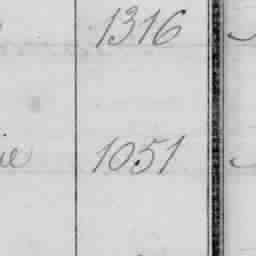 1316
1051